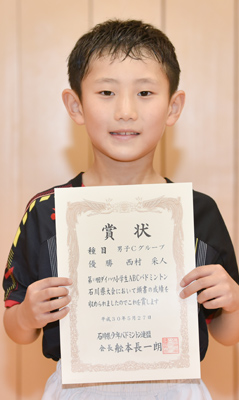 賞状
種目 男子Cグループ
優勝 西村 采人
第19回ダイハツ小学生ABCバドミントン
石川県大会において頭書の成績を
収められましたのでこれを賞します
平成30年5月27日
石川県少年バドミントン連盟
会長 舩本長一朗